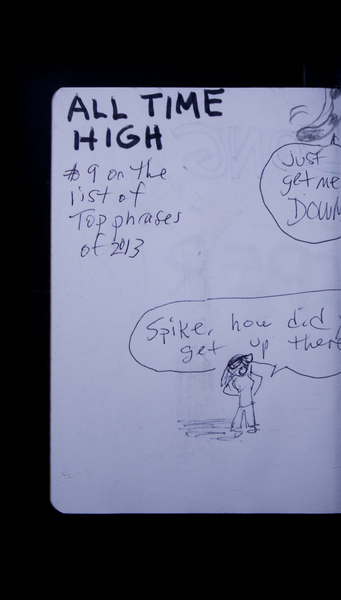 ALL TIME
HIGH
#9 on the
list of
Top phrases
of 2013
Just
get me
DOWN
Spike, how did
get up there